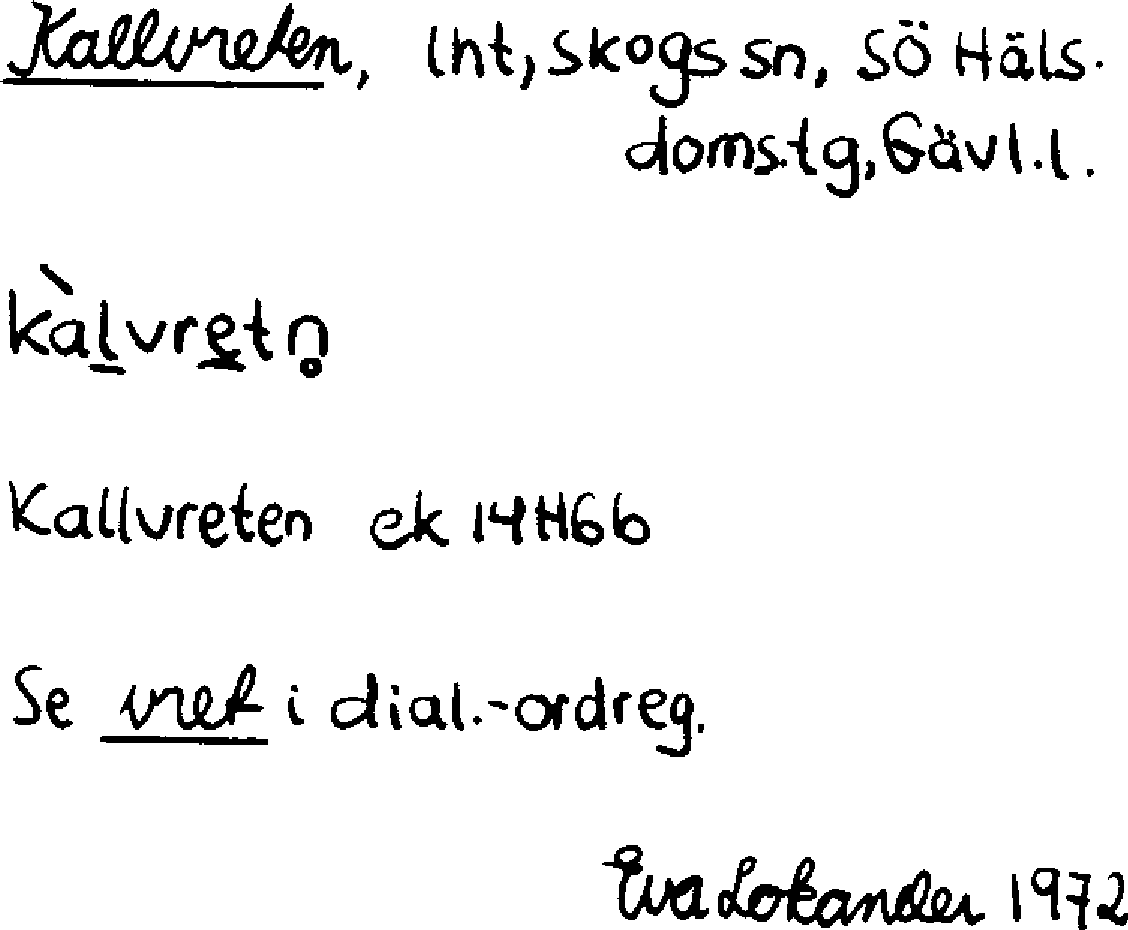 Kallvreten, lht, Skogs sn, SÖ Häls.
doms.tg, Gävl.l.
kàl̠vre̠tn̥
Kallvreten ek 14H6b
Se vret i dial.-ordreg.
Eva Lokander 1972